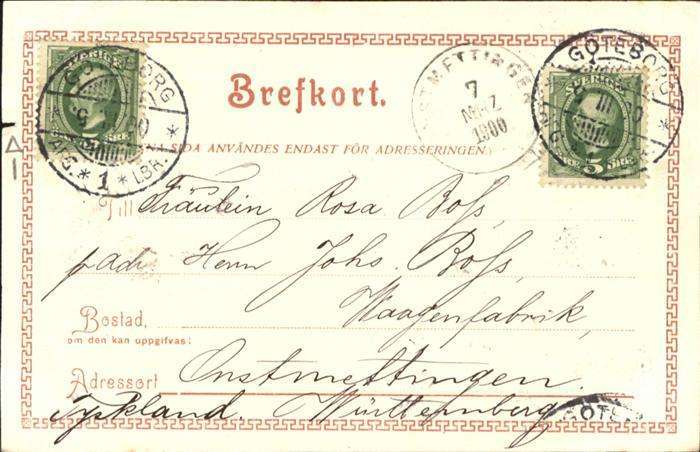 SVERIGE
GÖTEBORG
1
LBR.
Brefkort.
ONSTMETTINGEN
7
MRZ
1900
GÖTEBORG
SVERIGE
5
NA SIDA ANVÄNDES ENDAST FÖR ADRESSERINGEN.)
Till Fräulein Rosa Boss,
p adr. Herrn Johs. Boss,
Waagenfabrik,
Bostad,
om den kan uppgifvas:
Adressort Onstmettingen.
Tyskland. Württemberg
GÖTEB